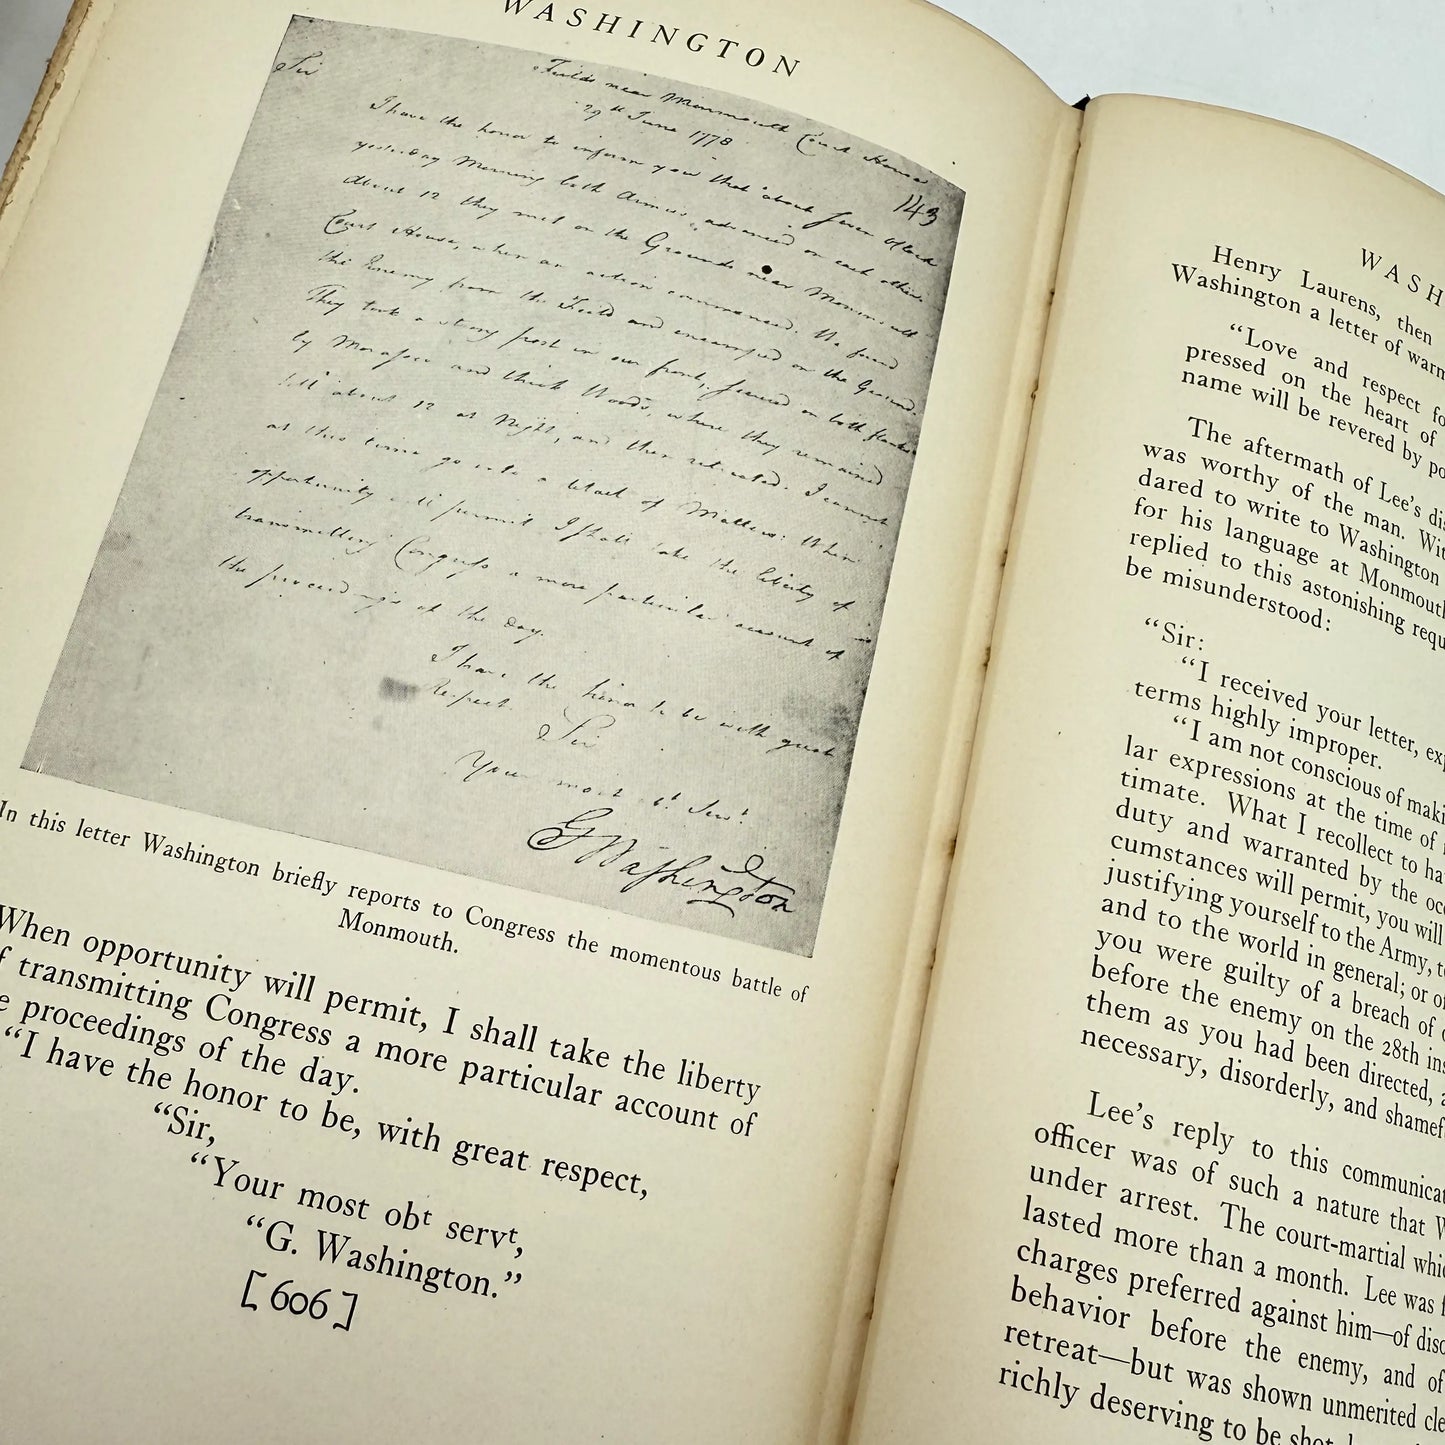 WASHINGTON
Fields near Monmouth Court House
29th June 1778
Sir
143
I have the honor to inform you that about seven oClock
yesterday Morning both Armies advanced on each other.
About 12 they met on the Grounds near Monmouth
Court House, when an action commenced. We forced
the Enemy from the Field and encamped on the Ground.
They took a strong post in our front, secured on both flanks
by Morasses and thick Woods, where they remained
till about 12 at Night, and then retreated. I cannot
at this time go into a detail of Matters. When
opportunity will permit I shall take the liberty of
transmitting Congress a more particular account of
the proceedings of the day.
I have the honor to be with great
Respect
Sir
Your most obt Servt
GWashington
In this letter Washington briefly reports to Congress the momentous battle of
Monmouth.
When opportunity will permit, I shall take the liberty
f transmitting Congress a more particular account of
e proceedings of the day.
“I have the honor to be, with great respect,
“Sir,
“Your most obt servt,
“G. Washington.”
[606]
WASH
Henry Laurens, then
Washington a letter of warm
“Love and respect fo
pressed on the heart of
name will be revered by po
The aftermath of Lee’s dis
was worthy of the man. Wit
dared to write to Washington
for his language at Monmouth
replied to this astonishing requ
be misunderstood:
“Sir:
“I received your letter, exp
terms highly improper.
“I am not conscious of maki
lar expressions at the time of
timate. What I recollect to ha
duty and warranted by the occ
cumstances will permit, you will
justifying yourself to the Army, to
and to the world in general; or of
you were guilty of a breach of o
before the enemy on the 28th ins
them as you had been directed, a
necessary, disorderly, and shamef
Lee’s reply to this communicat
officer was of such a nature that W
under arrest. The court-martial whic
lasted more than a month. Lee was f
charges preferred against him—of diso
behavior before the enemy, and of
retreat—but was shown unmerited cle
richly deserving to be shot